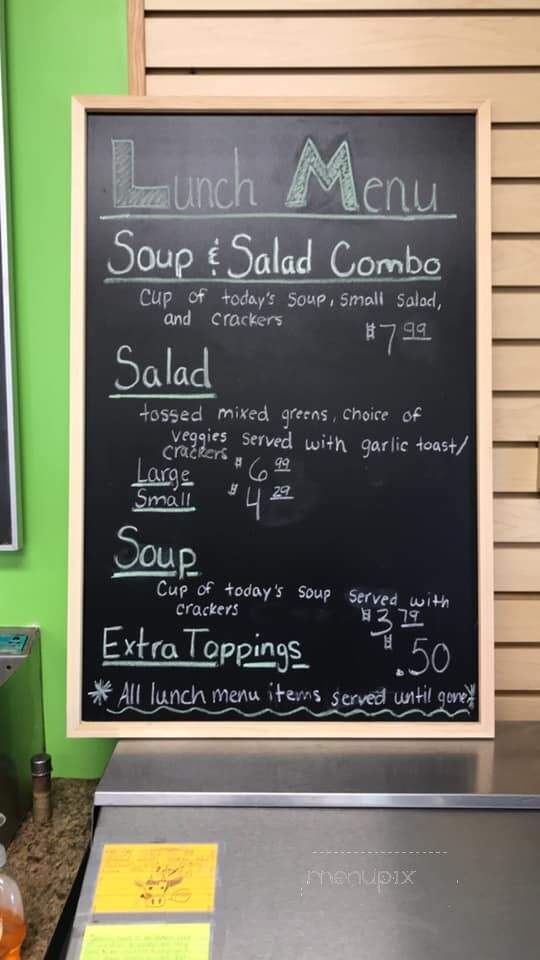 Lunch Menu
Soup & Salad Combo
Cup of today's soup, small salad,
and crackers
$7.99
Salad
tossed mixed greens, choice of
veggies served with garlic toast/
crackers
Large $6.99
Small $4.29
Soup
Cup of today's soup served with
crackers
$3.79
Extra Toppings $.50
*All lunch menu items served until gone*
menupix